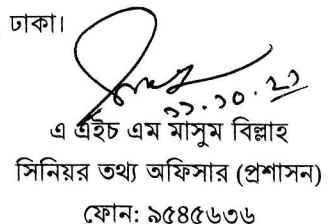 ঢাকা।
১১.১০.২১
এ এইচ এম মাসুম বিল্লাহ
সিনিয়র তথ্য অফিসার (প্রশাসন)
ফোন: ৯৫৪৫৬৩৬